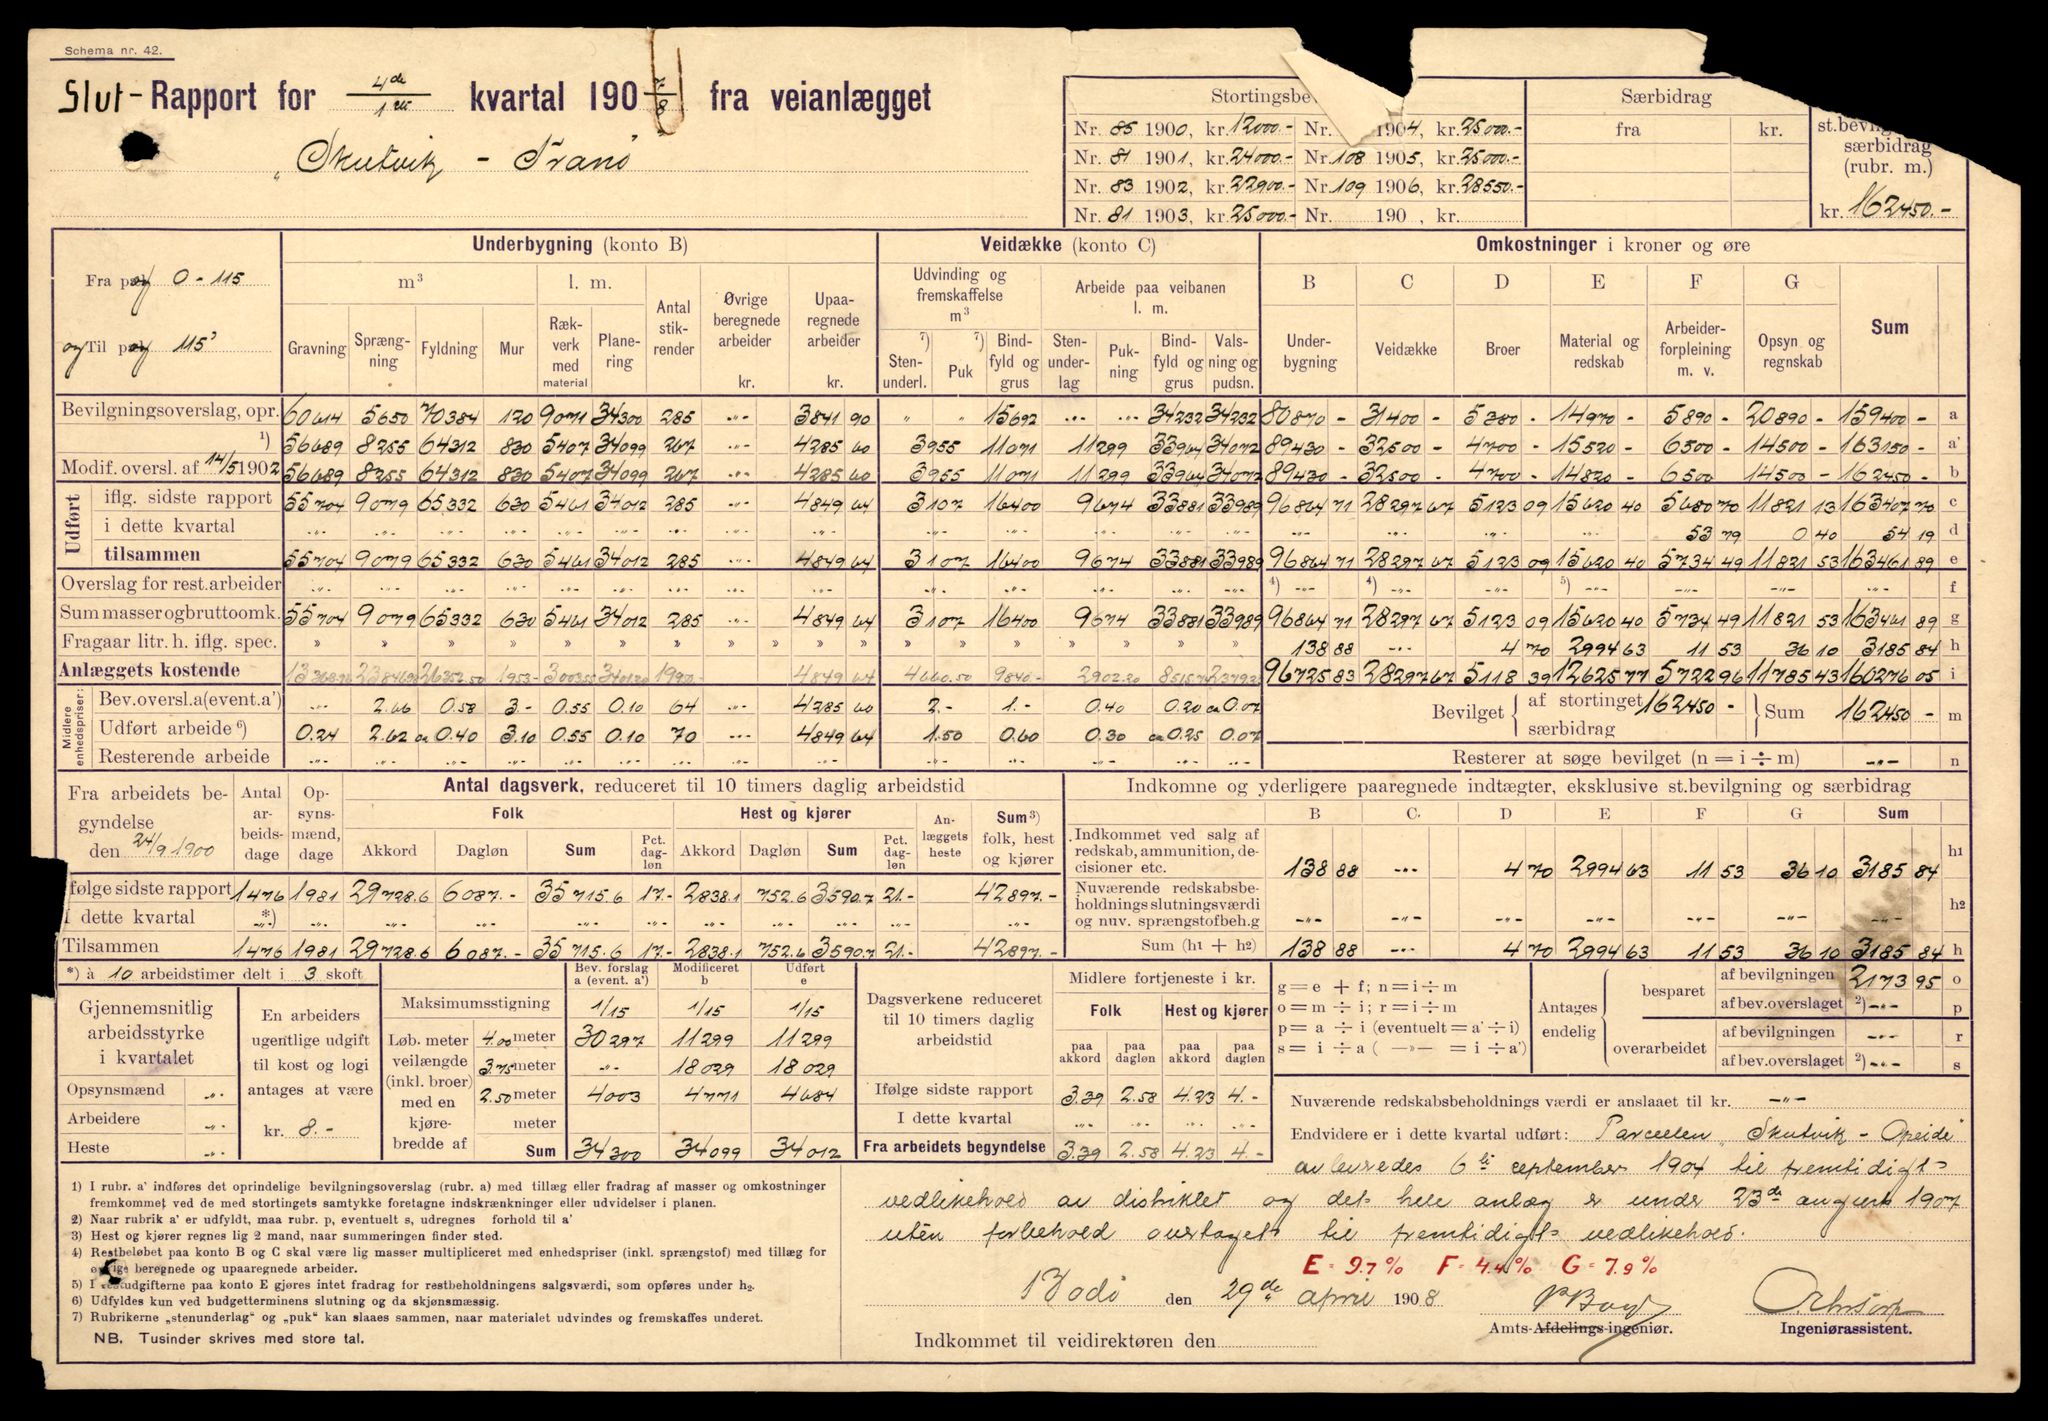 Schema nr. 42.
Slut-Rapport for 4de/1ste kvartal 1907/8 fra veianlægget
"Skutvik - Tranö"
Stortingsbe
Nr. 85 1900, kr. 12000.- Nr. 1904, kr. 25000.-
Nr. 81 1901, kr. 24000.- Nr. 108 1905, kr. 25000.-
Nr. 83 1902, kr. 22900.- Nr. 109 1906, kr. 28550.-
Nr. 81 1903, kr. 25000.- Nr. 190 , kr.
Særbidrag
fra kr.
st.bevilg
særbidrag
(rubr. m.)
kr. 162450.-
Fra pæl 0 - 115
og Til pæl 115
Underbygning (konto B) Veidække (konto C) Omkostninger i kroner og øre
m³ l. m. Antal stikrender Øvrige beregnede arbeider kr. Upaaregnede arbeider kr.
Udvinding og fremskaffelse m³ Arbeide paa veibanen l. m.
Gravning Sprængning Fyldning Mur Rækverk med material Planering
7) Stenunderl. Puk 7) Bindfyld og grus Stenunderlag Pukning Bindfyld og grus Valsning og pudsn.
B Underbygning C Veidække D Broer E Material og redskab F Arbeiderforpleining m. v. G Opsyn og regnskab Sum
Bevilgningsoverslag, opr. 60614 5650 70384 120 9071 34300 285 -"- 3841 90 " " 15692 -"- -"- 34232 34232 80870 - 31400 - 5380 - 14970 - 5890 - 20890 - 159400 - a
1) 56689 8255 64312 830 5407 34099 267 -"- 4285 60 3955 11071 11299 33964 34072 89430 - 32500 - 4700 - 15520 - 6500 - 14500 - 163150 - a'
Modif. oversl. af 14/5 1902 56689 8255 64312 830 5407 34099 267 -"- 4285 60 3955 11071 11299 33964 34072 89430 - 32500 - 4700 - 14820 - 6500 - 14500 - 162450 - b
Udført
iflg. sidste rapport 55704 9079 65332 630 5461 34012 285 -"- 4849 64 3107 16400 9674 33881 33989 96864 71 28297 67 5123 09 15620 40 5680 70 11821 13 163407 70 c
i dette kvartal -"- -"- -"- -"- -"- -"- -"- -"- -"- -"- -"- -"- -"- -"- -"- -"- -"- -"- 53 79 0 40 54 19 d
tilsammen 55704 9079 65332 630 5461 34012 285 -"- 4849 64 3107 16400 9674 33881 33989 96864 71 28297 67 5123 09 15620 40 5734 49 11821 53 163461 89 e
Overslag for rest.arbeider -"- -"- -"- -"- -"- -"- -"- -"- -"- -"- -"- -"- -"- -"- 4) -"- 4) -"- -"- 5) -"- -"- -"- -"- f
Sum masser og bruttoomk. 55704 9079 65332 630 5461 34012 285 -"- 4849 64 3107 16400 9674 33881 33989 96864 71 28297 67 5123 09 15620 40 5734 49 11821 53 163461 89 g
Fragaar litr. h. iflg. spec. » » » » » » » » » » » » » » » » 138 88 -"- 4 70 2994 63 11 53 36 10 3185 84 h
Anlæggets kostende 26352.50 1953.- 4849 64 4660.50 9840.- 2902.20 96725 83 28297 67 5118 39 12625 77 5722 96 11785 43 160276 05 i
Midlere enhedspriser:
Bev.oversl.a (event.a') -"- 2.66 0.58 3.- 0.55 0.10 64 -"- 4285 60 2.- 1.- 0.40 0.20 ca 0.07
Udført arbeide 6) 0.24 2.62 ca 0.40 3.10 0.55 0.10 70 -"- 4849 64 1.50 0.60 0.30 ca 0.25 0.07
Resterende arbeide -"- -"- -"- -"- -"- -"- -"- -"- -"- -"- -"- -"- -"- -"-
Bevilget af stortinget 162450 - særbidrag Sum 162450 - m
Resterer at søge bevilget (n = i ÷ m) -"- n
Fra arbeidets begyndelse den 24/9 1900
Antal arbeidsdage Opsynsmænd, dage
Antal dagsverk, reduceret til 10 timers daglig arbeidstid
Folk Hest og kjører Anlæggets heste Sum 3) folk, hest og kjører
Akkord Dagløn Sum Pct. dagløn Akkord Dagløn Sum Pct. dagløn
følge sidste rapport 1476 1981 29728.6 6087.- 35715.6 17.- 2838.1 752.6 3590.7 21.- 42897.-
I dette kvartal *) -"- -"- -"- -"- -"- -"- -"- -"- -"- -"- -"-
Tilsammen 1476 1981 29728.6 6087.- 35715.6 17.- 2838.1 752.6 3590.7 21.- 42897.-
*) à 10 arbeidstimer delt i 3 skoft
Indkomne og yderligere paaregnede indtægter, eksklusive st.bevilgning og særbidrag
B C. D E F G Sum
Indkommet ved salg af redskab, ammunition, decisioner etc. 138 88 -"- 4 70 2994 63 11 53 36 10 3185 84 h1
Nuværende redskabsbeholdnings slutningsværdi og nuv. sprængstofbeh.g -"- -"- -"- -"- -"- -"- -"- h2
Sum (h1 + h2) 138 88 -"- 4 70 2994 63 11 53 36 10 3185 84 h
Gjennemsnitlig arbeidsstyrke i kvartalet
Opsynsmænd -"-
Arbeidere -"-
Heste -"-
En arbeiders ugentlige udgift til kost og logi antages at være
kr. 8.-
Bev. forslag a (event. a') Modificeret b Udført e
Maksimumsstigning 1/15 1/15 1/15
Løb. meter veilængde (inkl. broer) med en kjørebredde af
4.00 meter 30297 11299 11299
3.75 meter -"- 18029 18029
2.50 meter 4003 4771 4684
meter
Sum 34300 34099 34012
Dagsverkene reduceret til 10 timers daglig arbeidstid
Midlere fortjeneste i kr.
Folk Hest og kjører
paa akkord paa dagløn paa akkord paa dagløn
Ifølge sidste rapport 3.39 2.58 4.23 4.-
I dette kvartal -"- -"- -"- -"-
Fra arbeidets begyndelse 3.39 2.58 4.23 4.-
g = e + f; n = i ÷ m
o = m ÷ i; r = i ÷ m
p = a ÷ i (eventuelt = a' ÷ i)
s = i ÷ a ( —»— = i ÷ a')
Antages endelig
besparet af bevilgningen 2173 95 o
af bev.overslaget 2) -"- p
overarbeidet af bevilgningen -"- r
af bev.overslaget 2) -"- s
Nuværende redskabsbeholdnings værdi er anslaaet til kr. -"-
Endvidere er i dette kvartal udført: Parcellen "Skutvik - Opeide"
avleveredes 6te september 1904 til fremtidigt
vedlikehold av distriktet og det hele anlæg er under 23de august 1907
uten forbehold overtaget til fremtidigt vedlikehold.
E = 9.7 % F = 4.4 % G = 7.9 %
Bodö den 29de april 1908
Amts-Afdelings-ingeniør. Ingeniørassistent.
Indkommet til veidirektøren den
1) I rubr. a' indføres det oprindelige bevilgningsoverslag (rubr. a) med tillæg eller fradrag af masser og omkostninger
fremkommet ved de med stortingets samtykke foretagne indskrænkninger eller udvidelser i planen.
2) Naar rubrik a' er udfyldt, maa rubr. p, eventuelt s, udregnes forhold til a'
3) Hest og kjører regnes lig 2 mand, naar summeringen finder sted.
4) Restbeløbet paa konto B og C skal være lig masser multipliceret med enhedspriser (inkl. sprængstof) med tillæg for
øvrige beregnede og upaaregnede arbeider.
5) I restudgifterne paa konto E gjøres intet fradrag for restbeholdningens salgsværdi, som opføres under h2.
6) Udfyldes kun ved budgetterminens slutning og da skjønsmæssig.
7) Rubrikerne „stenunderlag" og „puk" kan slaaes sammen, naar materialet udvindes og fremskaffes underet.
NB. Tusinder skrives med store tal.